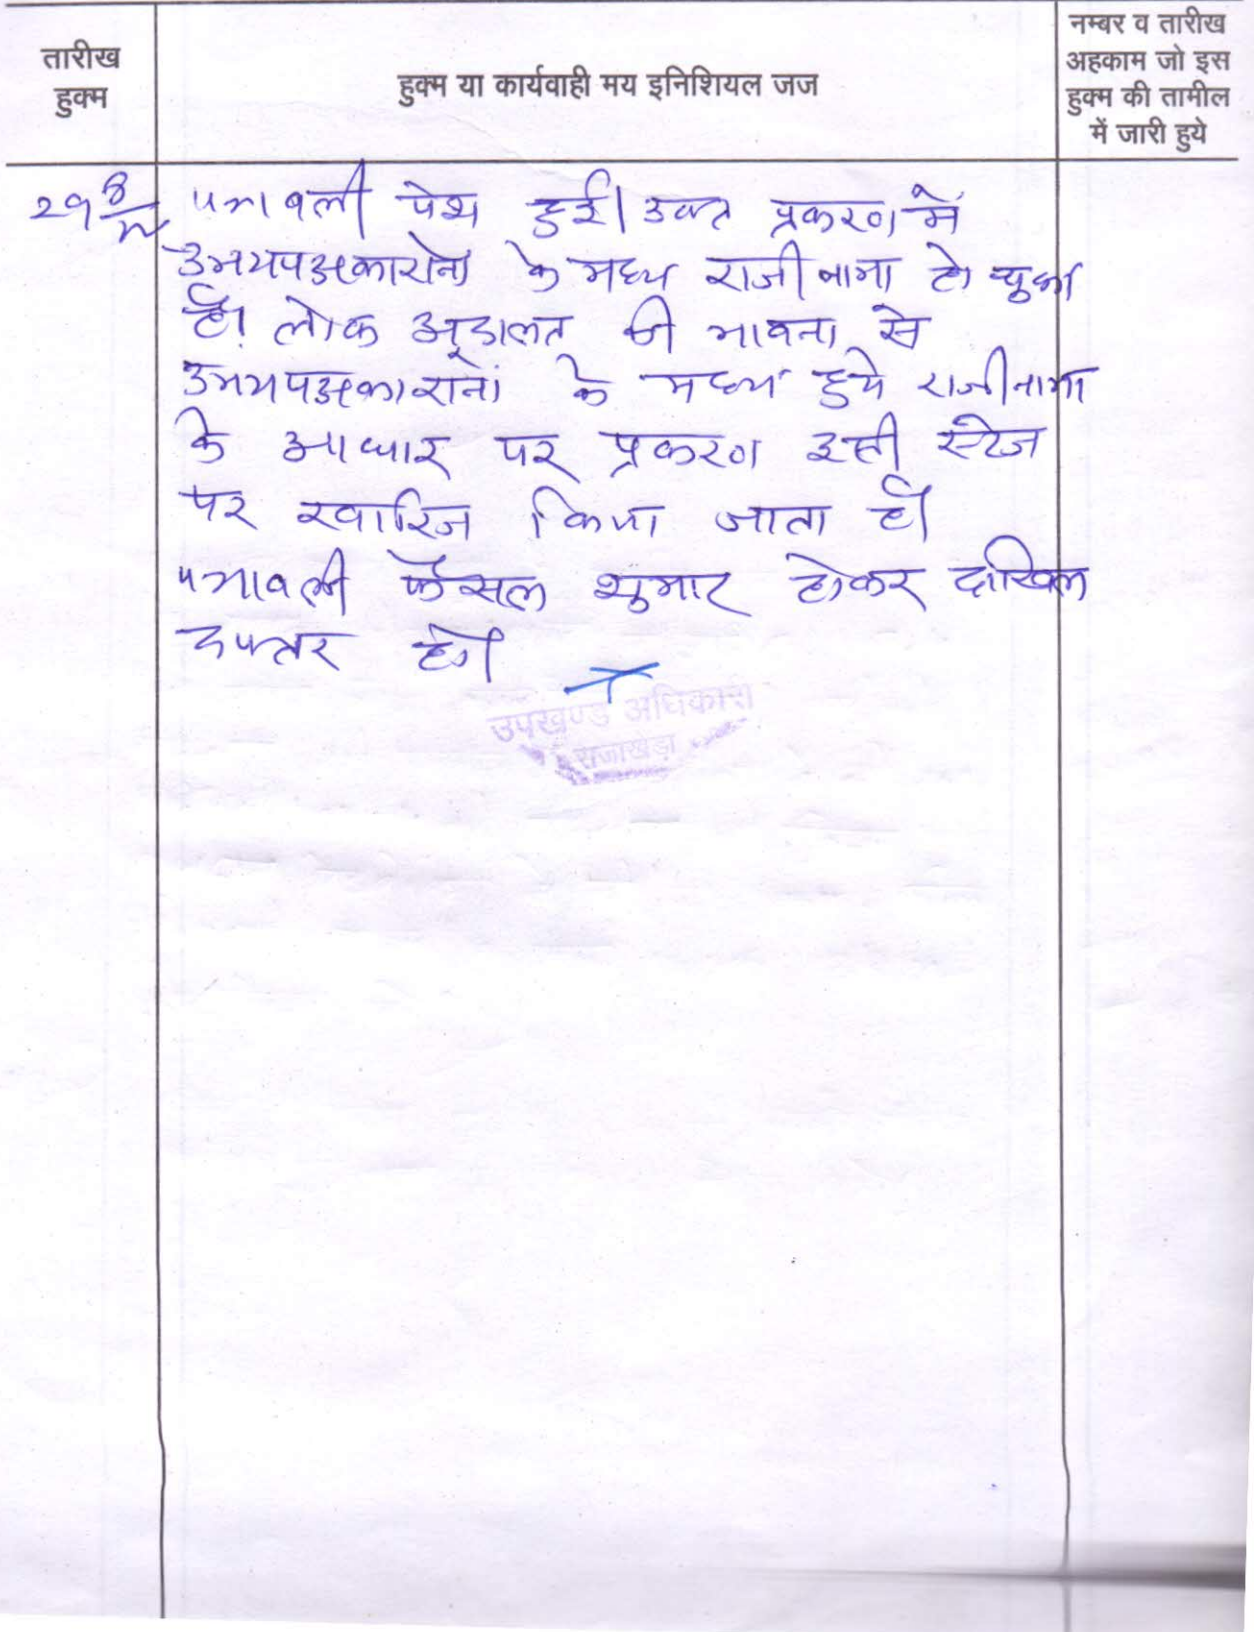 तारीख
हुक्म
हुक्म या कार्यवाही मय इनिशियल जज
नम्बर व तारीख
अहकाम जो इस
हुक्म की तामील
में जारी हुये
पत्रावली पेश हुई। उक्त प्रकरण में
उभयपक्षकारोनों के मध्य राजीनामा हो चुका
है। लोक अदालत की भावना से
उभयपक्षकारानों के मध्य हुये राजीनामा
के आधार पर प्रकरण इसी स्टेज
पर खारिज किया जाता है।
पत्रावली फैसल शुमार होकर दाखिल
दफ्तर हो।
उपखण्ड अधिकारी
राजाखेड़ा